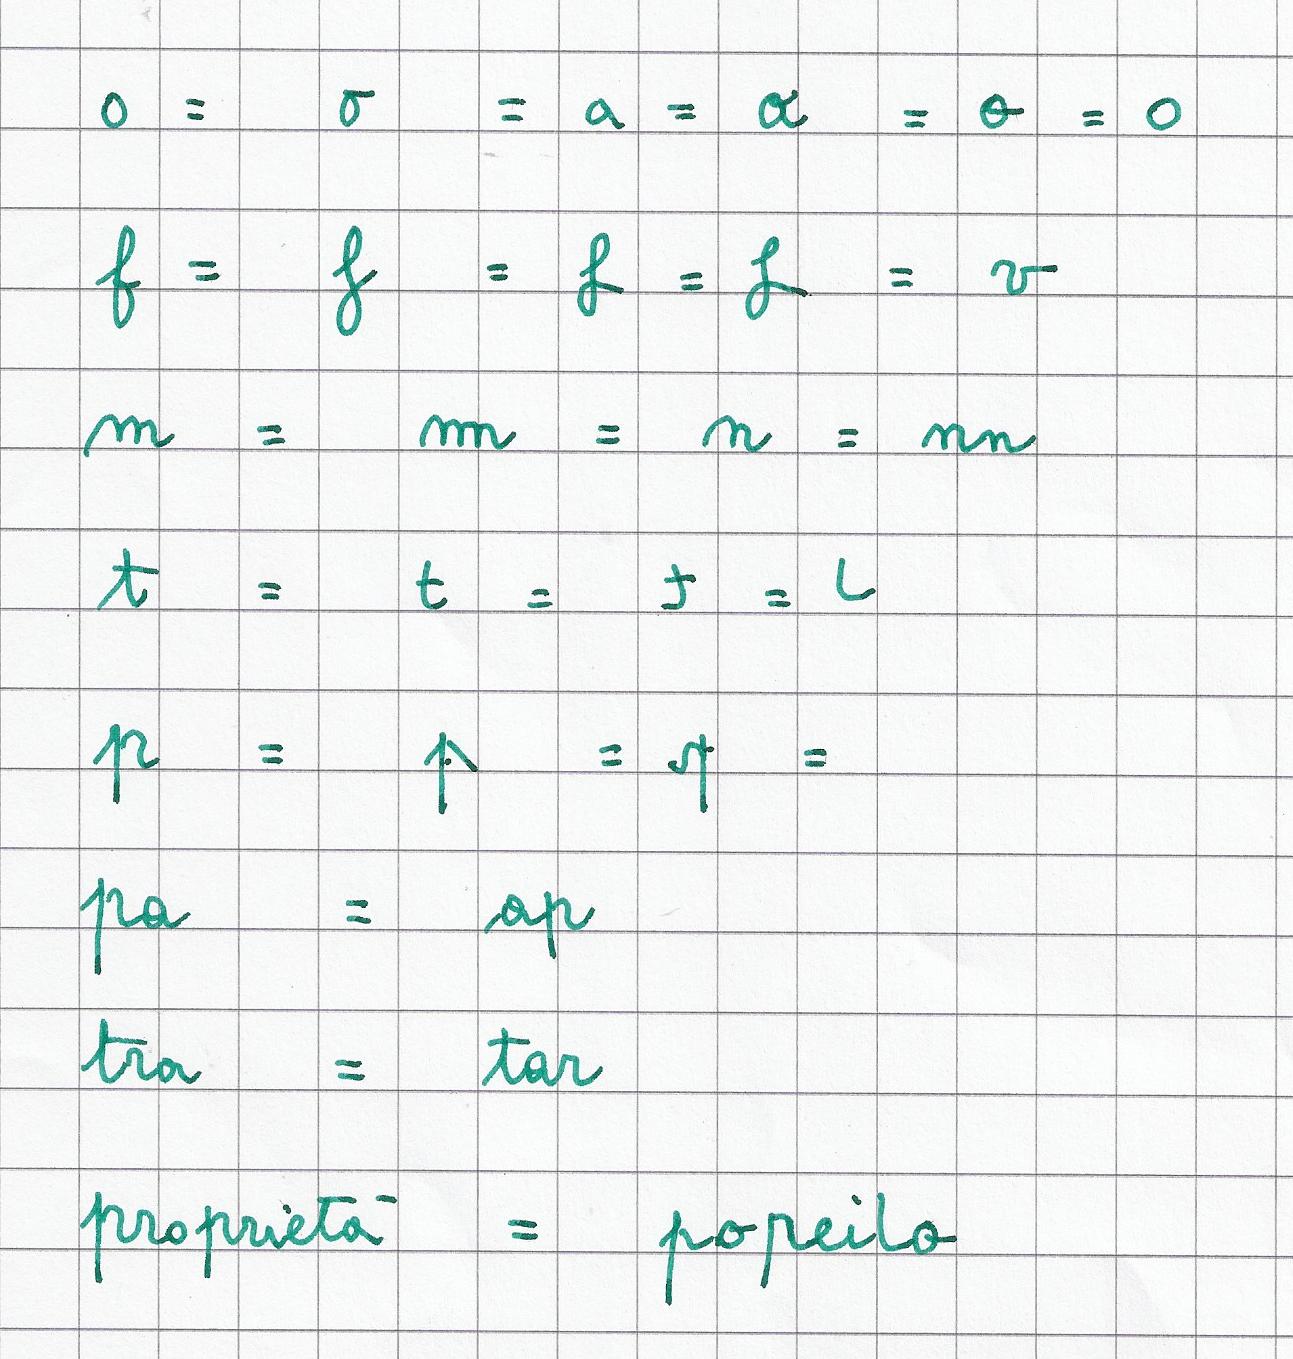 o = σ = a = α = o = o
f = f = f = f = v
m = mm = n = nn
t = t = t = l
p = p = p =
pa = ap
tra = tar
proprietà = popeilo